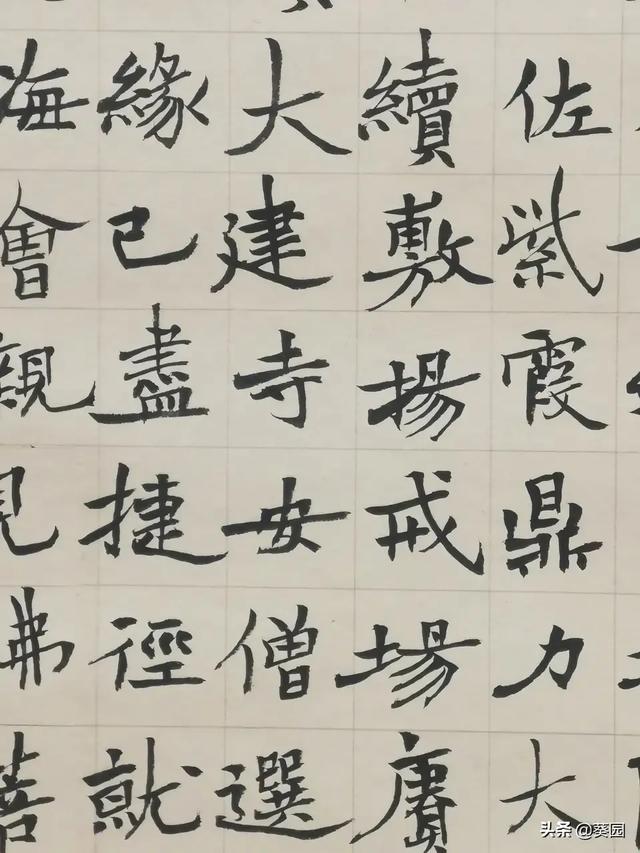 佐紫霞鼎力大
續敷揚戒場賡
大建寺安僧選
緣已盡捷徑就
海會親見弗善
头条 @葵园